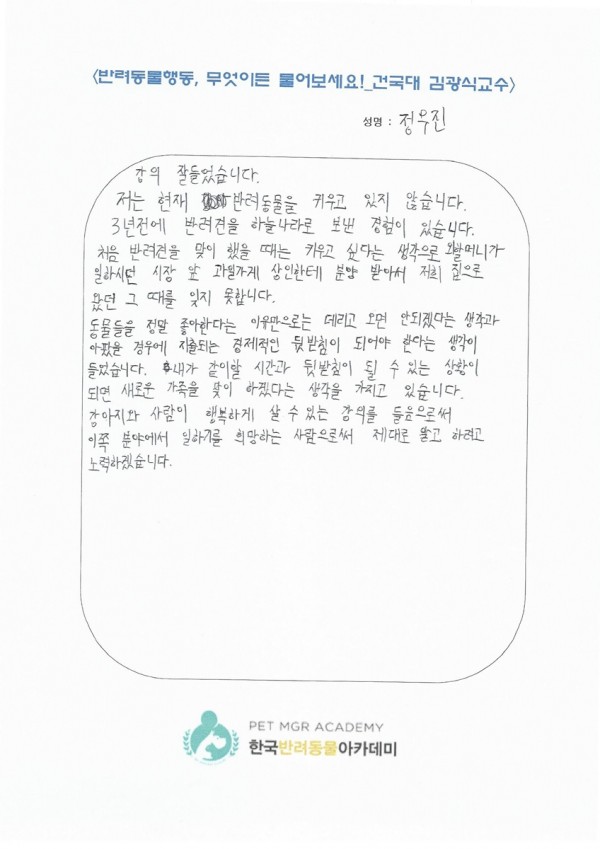 <반려동물행동, 무엇이든 물어보세요!_건국대 김광식교수>
성명 : 정우진
강의 잘들었습니다.
저는 현재 반려동물을 키우고 있지 않습니다.
3년전에 반려견을 하늘나라로 보낸 경험이 있습니다.
처음 반려견을 맞이 했을 때는 키우고 싶다는 생각으로 외할머니가
일하시던 시장 앞 과일가게 상인한테 분양 받아서 저희 집으로
왔던 그 때를 잊지 못합니다.
동물들을 정말 좋아한다는 이유만으로는 데리고 오면 안되겠다는 생각과
아팠을 경우에 지출되는 경제적인 뒷받침이 되어야 한다는 생각이
들었습니다. 내가 같이할 시간과 뒷받침이 될 수 있는 상황이
되면 새로운 가족을 맞이 하겠다는 생각을 가지고 있습니다.
강아지와 사람이 행복하게 살 수 있는 강의를 들음으로써
이쪽 분야에서 일하기를 희망하는 사람으로써 제대로 알고 하려고
노력하겠습니다.
PET MGR ACADEMY
한국반려동물아카데미